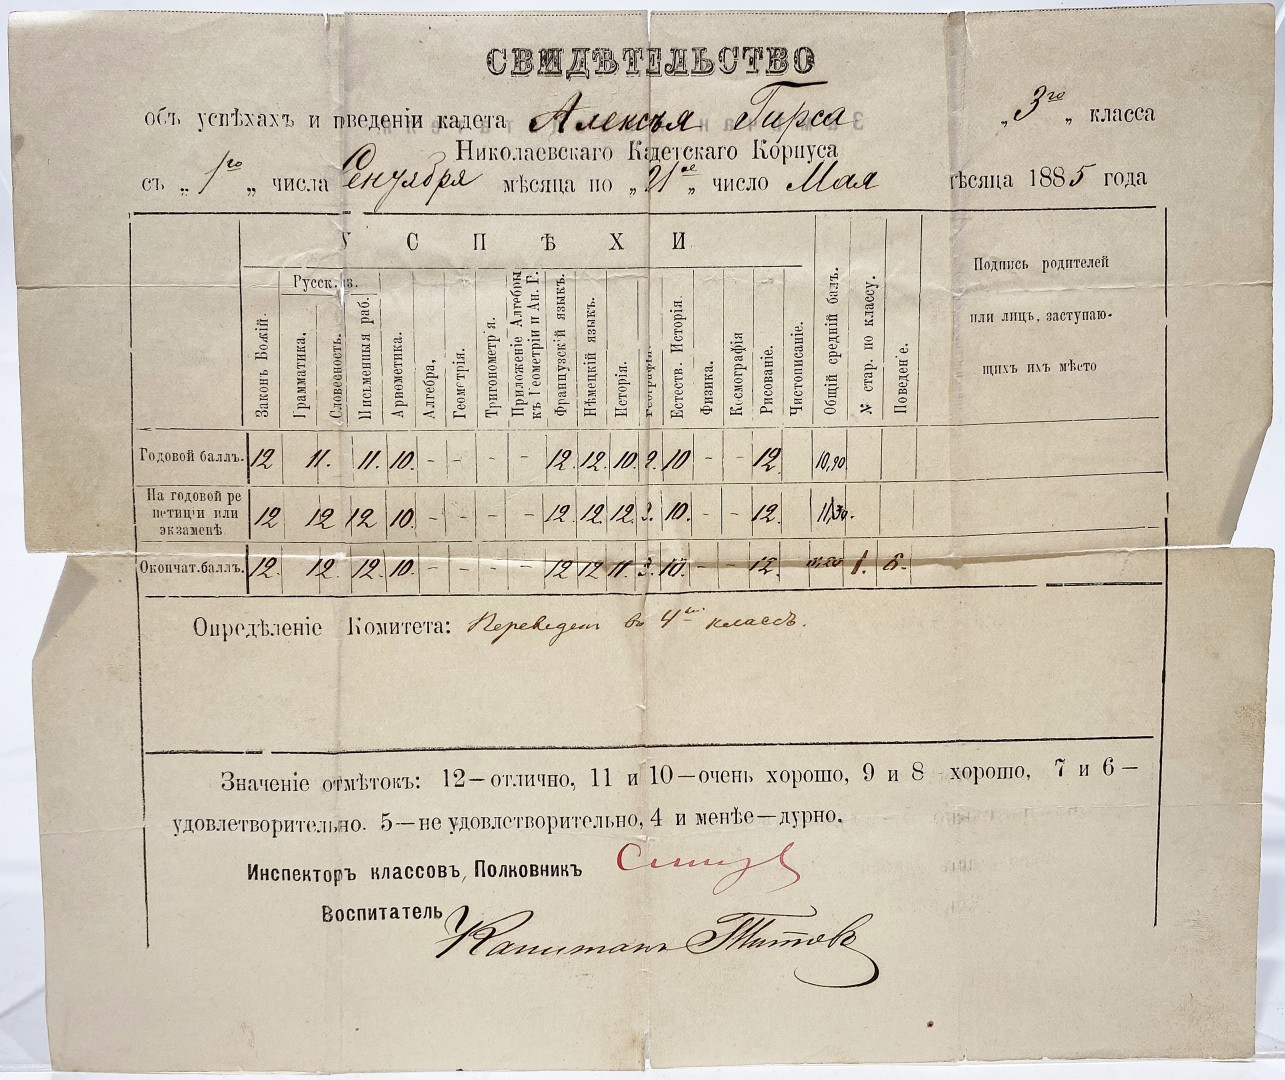 СВИДѢТЕЛЬСТВО
объ успѣхахъ и поведеніи кадета Алексѣя Гирса „ 3го „ класса
Николаевскаго Кадетскаго Корпуса
съ „ 1го „ числа Сентября мѣсяца по „ 21ое „ число Мая мѣсяца 1885 года
УСПѢХИ
Русск. яз.
Законъ Божій.
Грамматика.
Словесность.
Письменныя раб.
Ариѳметика.
Алгебра,
Геометрія.
Тригонометрія.
Приложеніе Алгебры къ Геометріи и Ан. Г.
Французскій языкъ.
Нѣмецкій языкъ.
Исторія.
Географія.
Естеств. Исторія.
Физика.
Космографія
Рисованіе.
Чистописаніе.
Общій средній балъ.
№ стар. по классу.
Поведеніе.
Подпись родителей
или лицъ, заступаю-
щихъ ихъ мѣсто
Годовой баллъ. 12 11. 11. 10. - - - - 12. 12. 10. 10 - - 12. 10,90
На годовой ре
петиціи или
экзаменѣ 12 12 12 10. - - - - 12. 12. 12. 10. - - 12. 11,30.
Окончат. баллъ. 12. 12. 12. 10. - - - - 12 12 11. 10. - - 12. 1. 6.
Опредѣленіе Комитета: Переведенъ въ 4ый классъ.
Значеніе отмѣтокъ: 12—отлично, 11 и 10—очень хорошо, 9 и 8 хорошо, 7 и 6—
удовлетворительно. 5—не удовлетворительно, 4 и менѣе—дурно.
Инспекторъ классовъ, Полковникъ
Воспитатель Капитанъ Титовъ